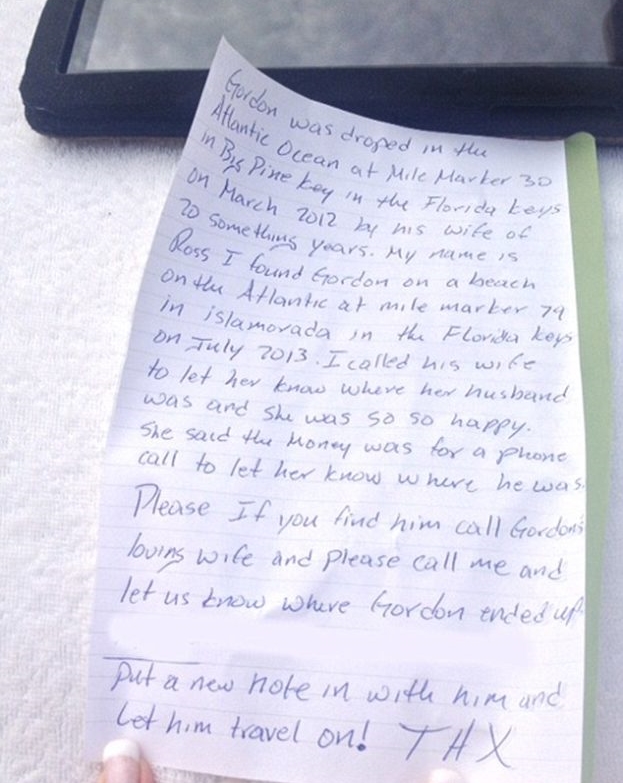 Gordon was droped in the
Atlantic Ocean at Mile Marker 30
in Big Pine key in the Florida keys
on March 2012 by his wife of
20 something years. My name is
Ross I found Gordon on a beach
on the Atlantic at mile marker 79
in islamorada in the Florida keys
on July 2013. I called his wife
to let her know where her husband
was and she was so so happy.
She said the Money was for a phone
call to let her know where he was.
Please If you find him call Gordon's
loving wife and please call me and
let us know where Gordon ended up
Put a new note in with him and
Let him travel on! THX